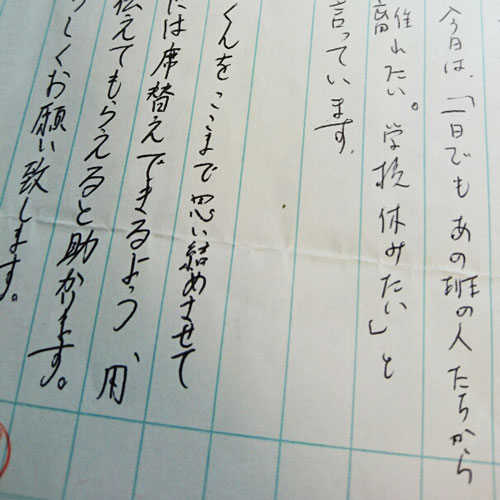 今日は、「一日でもあの班の人たちから
離れたい。学校休みたい」と
言っています。
くんをここまで思い詰めさせて
は席替えできるよう、用
伝えてもらえると助かります。
しくお願い致します。